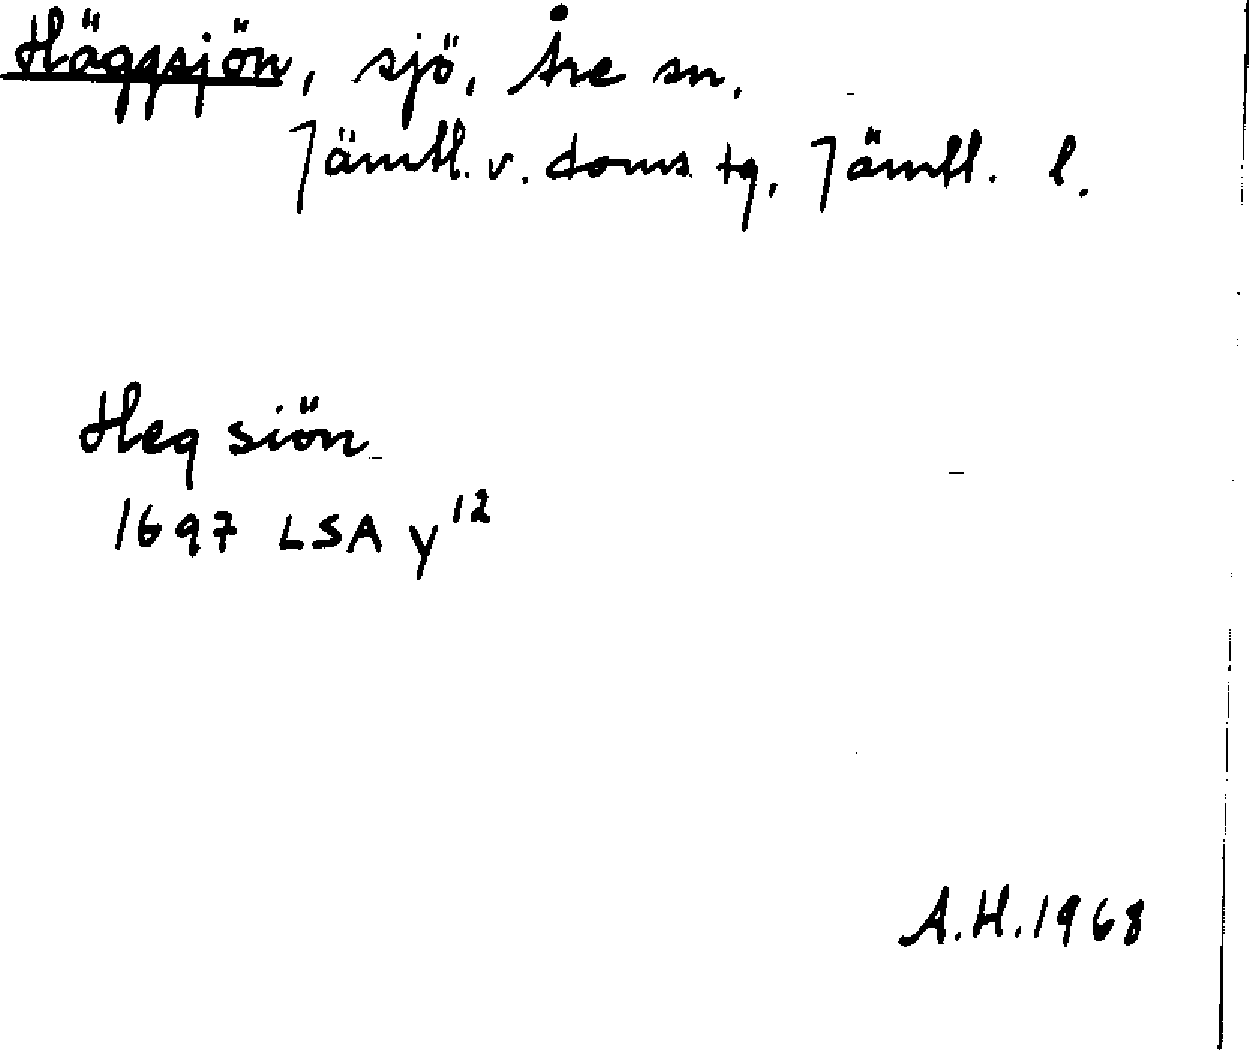 Häggsjön, sjö, Åre sn.
Jämtl. v. doms. tg, Jämtl. l.
Heg siön
1697 LSA y¹²
A.H. 1968